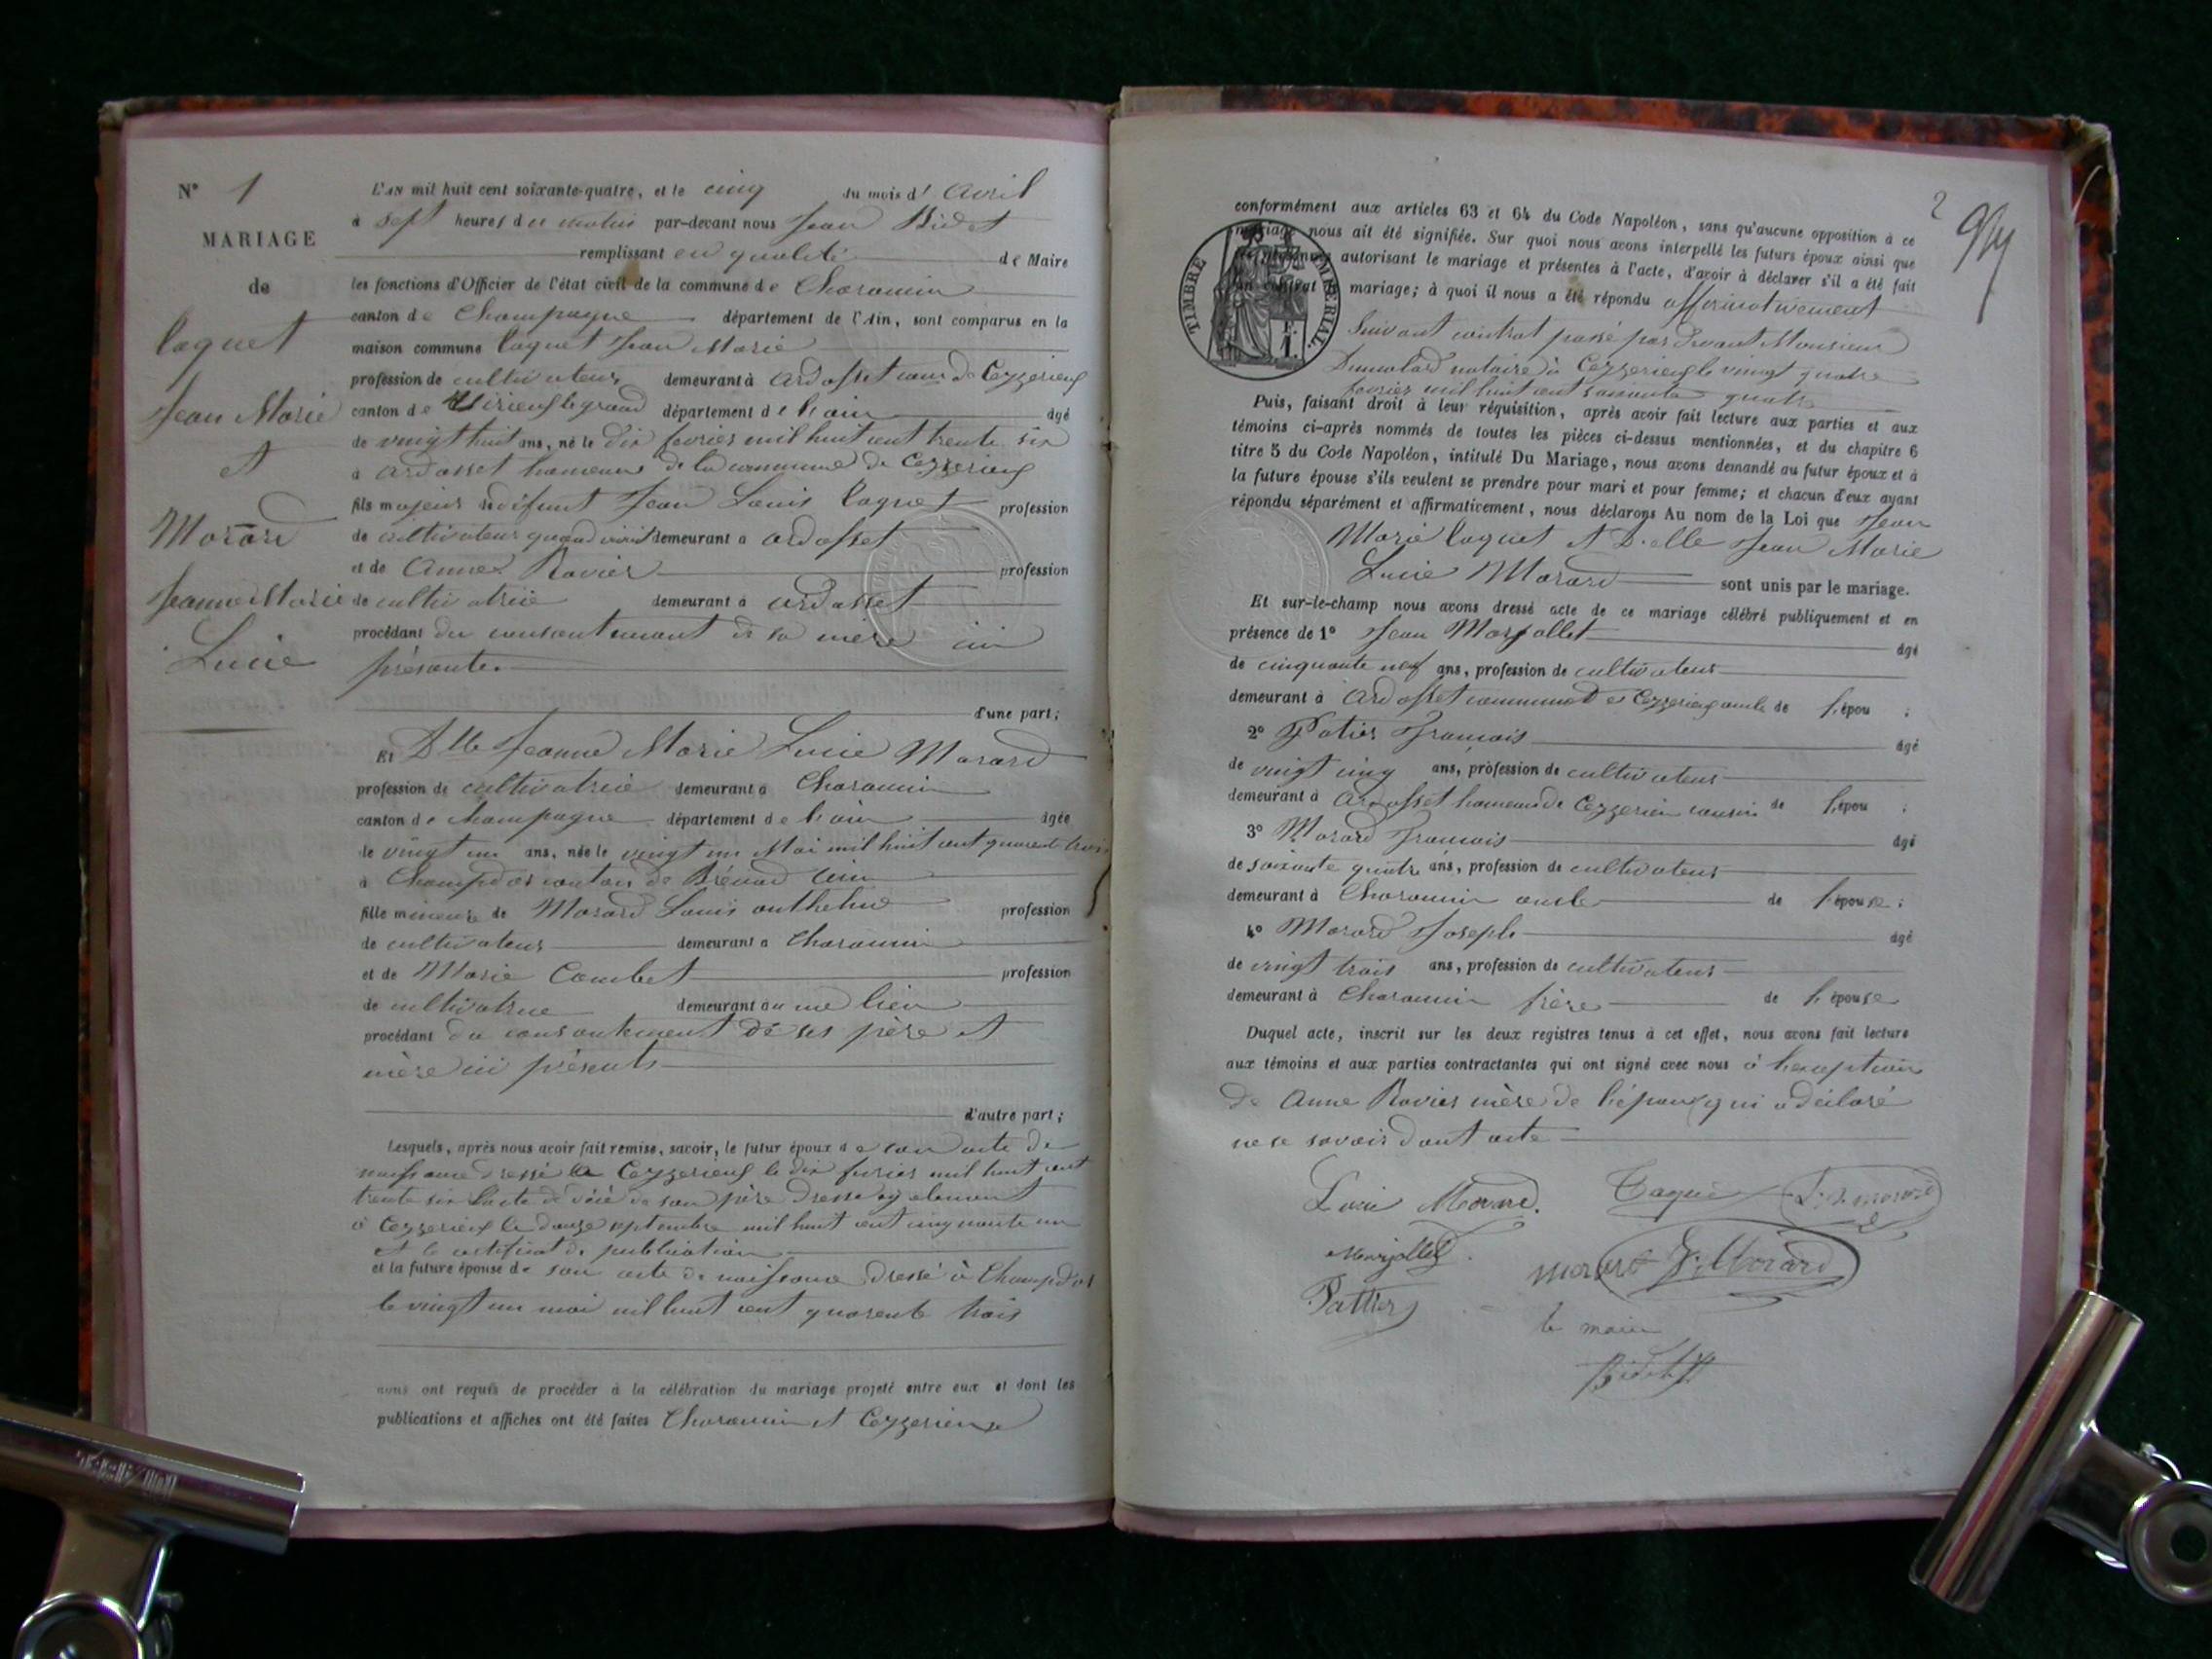 N° 1
MARIAGE
de
Caquet
Jean Marie
et
Morard
Jeanne Marie
Lucie
L'AN mil huit cent soixante-quatre, et le cinq du mois d'Avril
à sept heures du matin par-devant nous Jean Bidet
remplissant en qualité de Maire
les fonctions d'Officier de l'état civil de la commune de Charancin
canton de Champagne département de l'Ain, sont comparus en la
maison commune Caquet Jean Marie
profession de cultivateur demeurant à Ardosset com de Ceyzerieux
canton de Virieux le grand département de l'ain âgé
de vingt huit ans, né le dix fevrier mil huit cent trente six
à Ardosset hameau de la commune de Ceyzerieux
fils majeur de défunt Jean Louis Caquet profession
de cultivateur quand vivait demeurant à ardosset
et de Anne Ravier profession
de cultivatrice demeurant à ardosset
procédant du consentement de sa mère ici
présente.
d'une part;
Et Dlle Jeanne Marie Lucie Morard
profession de cultivatrice demeurant à Charancin
canton de champagne département de l'ain âgée
de vingt un ans, née le vingt un Mai mil huit cent quarante trois
à Champdor canton de Brénod Ain
fille mineure de Morard Louis Anthelme profession
de cultivateur demeurant à Charancin
et de Marie Combet profession
de cultivatrice demeurant au me lieu
procédant du consentement de ses père et
mère ici présents
d'autre part;
Lesquels, après nous avoir fait remise, savoir, le futur époux de son acte de
naissance dressé à Ceyzerieux le dix fevrier mil huit cent
trente six l'acte de décè de son père dressé egalement
à Ceyzerieux le douze septembre mil huit cent cinquante un
et le certificat de publication
et la future épouse de son acte de naissance dressé à Champdor
le vingt un mai mil huit cent quarente trois
nous ont requis de procéder à la célébration du mariage projeté entre eux et dont les
publications et affiches ont été faites Charancin et Ceyzerieux
2
conformément aux articles 63 et 64 du Code Napoléon, sans qu'aucune opposition à ce
mariage nous ait été signifiée. Sur quoi nous avons interpellé les futurs époux ainsi que
les personnes autorisant le mariage et présentes à l'acte, d'avoir à déclarer s'il a été fait
un contrat mariage; à quoi il nous a été répondu affirmativement
TIMBRE IMPERIAL.
Suivant contrat passé par devant Monsieur
Dumolard notaire à Ceyzerieux le vingt quatre
fevrier mil huit cent soixante quatre
Puis, faisant droit à leur réquisition, après avoir fait lecture aux parties et aux
témoins ci-après nommés de toutes les pièces ci-dessus mentionnées, et du chapitre 6
titre 5 du Code Napoléon, intitulé Du Mariage, nous avons demandé au futur époux et à
la future épouse s'ils veulent se prendre pour mari et pour femme; et chacun d'eux ayant
répondu séparément et affirmativement, nous déclarons Au nom de la Loi que Jean
Marie Caquet et D.elle Jean Marie
Lucie Morard sont unis par le mariage.
Et sur-le-champ nous avons dressé acte de ce mariage célébré publiquement et en
présence de 1° Jean Marjollet âgé
de cinquante neuf ans, profession de cultivateur
demeurant à Ardosset commune de Ceyzerieux oncle de l'épou ;
2° Patier François âgé
de vingt cinq ans, profession de cultivateur
demeurant à Ardosset hameau de Ceyzerieu cousin de l'épou ;
3° Morard François âgé
de soixante quatre ans, profession de cultivateur
demeurant à Charancin oncle de l'épouse;
4° Morard Joseph âgé
de vingt trois ans, profession de cultivateur
demeurant à Charancin frère de l'épouse
Duquel acte, inscrit sur les deux registres tenus à cet effet, nous avons fait lecture
aux témoins et aux parties contractantes qui ont signé avec nous à l'exception
de Anne Ravier mère de l'époux qui a déclaré
ne se savoir dont acte
Lucie Morard. Caquet
Marjollet. morard J. Morard
Pattier
le maire
Bidet